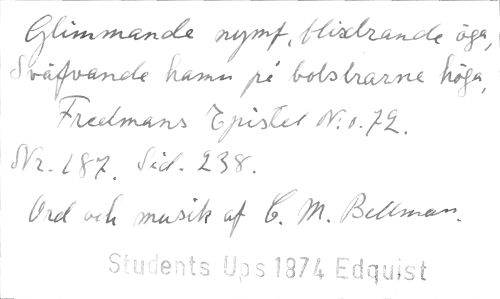 Glimmande nymf, blixtrande öga,
Sväfvande hamn på bolstrarne höga,
Fredmans Epistel N:o. 72.
Nr. 187. Sid. 238.
Ord och musik af C. M. Bellman.
Students Ups 1874 Edquist